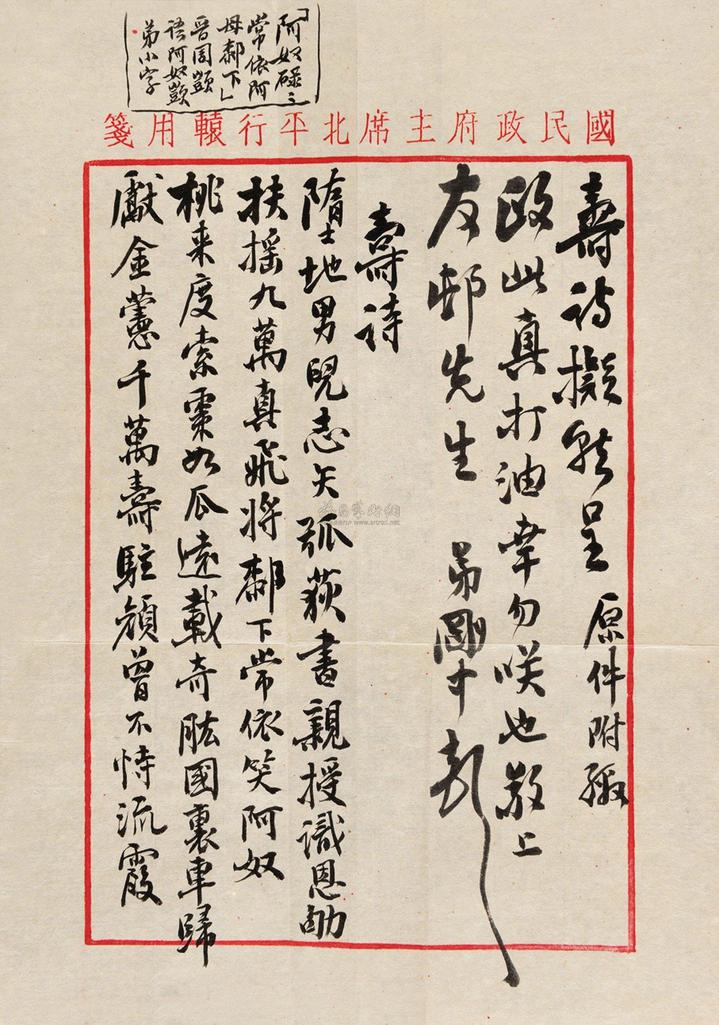 「阿奴碌々
常依阿
母膝下」
晉周顗
語阿奴顗
弟小字
國民政府主席北平行轅用箋
壽詩擬就呈 原件附繳
政此真打油幸勿咲也敬上
友邨先生 弟
壽詩
墮地男兒志矢弧荻書親授識恩劬
扶搖九萬真飛將膝下常依笑阿奴
桃来度索棗如瓜遠載奇肱國裏車歸
獻金薹千萬壽駐顏曾不恃流霞